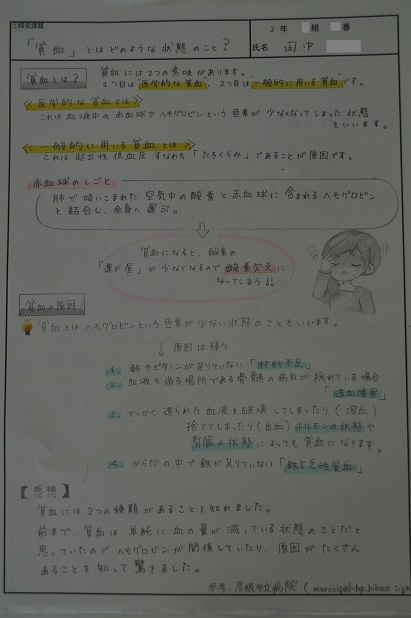 ①探究課題
「貧血」とはどのような状態のこと?
2年 組 番
氏名 田中
貧血とは?
貧血には2つの意味があります。
1つ目は"医学的な貧血"、2つ目は"一般的に用いる貧血"です。
<医学的な貧血とは>
これは血液中の赤血球やヘモグロビンという色素が少なくなってしまった状態
をいいます。
<一般的に用いる貧血とは>
これは起立性低血圧すなわち「たちくらみ」であることが原因です。
赤血球のしごと
肺で吸いこまれた空気中の酸素と赤血球に含まれるヘモグロビン
と結合し、全身へ運ぶ。
貧血になると、酸素の
「運び屋」が少なくなるので酸素欠乏に
なってしまう!!
貧血の原因
貧血とはヘモグロビンという色素が少ない状態のことをいいます。
原因は様々
1. 鉄やビタミンが足りていない「材料不足」
2. 血液を造る場所である骨髄の病気が隠れている場合
「造血障害」
3. せっかく造られた血液を破壊してしまったり(溶血)
捨ててしまったり(出血)ホルモンの状態や
腎臓の状態によっても貧血になります。
4. からだの中で鉄が足りていない「鉄欠乏性貧血」
【感想】
貧血には2つの種類があることを知れました。
前まで、貧血は単純に血の量が減っている状態のことだと
思っていたのでヘモグロビンが関係していたり、原因がたくさん
あることを知って驚きました。
参考:彦根市立病院 (municipal-hp.hikone.siga